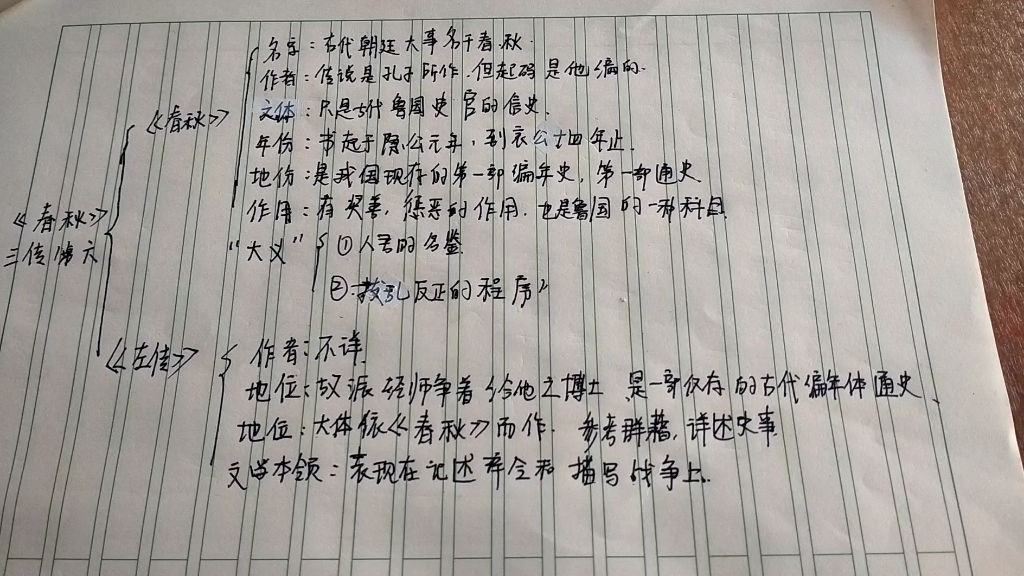 名字：古代朝廷大事多于春秋.
作者：传说是孔子所作.但起码是他编的.
《春秋》
文体：只是古代鲁国史官的信史.
年份：书起于隐公元年,到哀公十四年止.
地份：是我国现存的第一部编年史,第一部通史
作用：有奖善,惩恶的作用.也是鲁国的一种科目.
《春秋》
三传第六
"大义"
①人君的名鉴
②拨乱反正的程序
《左传》
作者：不详.
地位：汉派经师争着给他立博士 是一部仅存的古代编年体通史.
地位：大体依《春秋》而作. 参考群籍,详述史事
文学本领：表现在记述辞令和描写战争上.